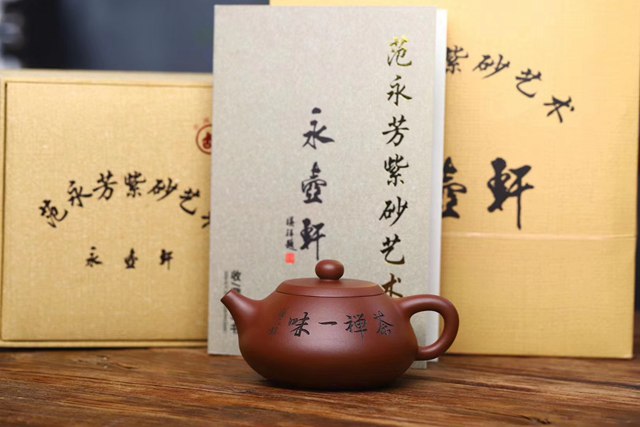 范永芳紫砂艺术
永壶轩
范永芳紫砂艺术
永壺轩
收
紫砂艺术
壺轩
茶禅一味